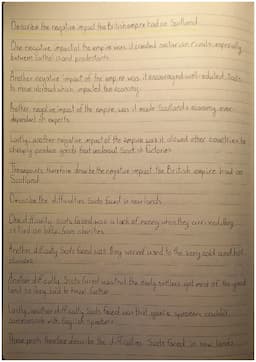 Describe the negative impact the British empire had on Scotland.
One negative impact of the empire was it created sectarian conflict, especially
between Catholics and protestants.
Another negative impact of the empire was it encouraged well-educated Scots
to move abroad which impacted the economy.
Another negative impact of the empire was it made Scotland's economy over
dependent of exports.
Lastly, another negative impact of the empire was it allowed other countries to
cheaply produce goods that undercut Scottish factories.
These points therefore describe the negative impact the British empire had on
Scotland.
Describe the difficulties Scots faced in new lands.
One difficulty Scots faced was a lack of money when they arrived
Another difficulty Scots faced was they weren't used to the very cold and hot
climates.
Another difficulty Scots faced was that the early settlers got most of the good
land so they had to travel further
Lastly, another difficulty Scots faced was that gaelic speakers couldn't
communicate with English speakers
These points therefore describe the difficulties Scots faced in new lands